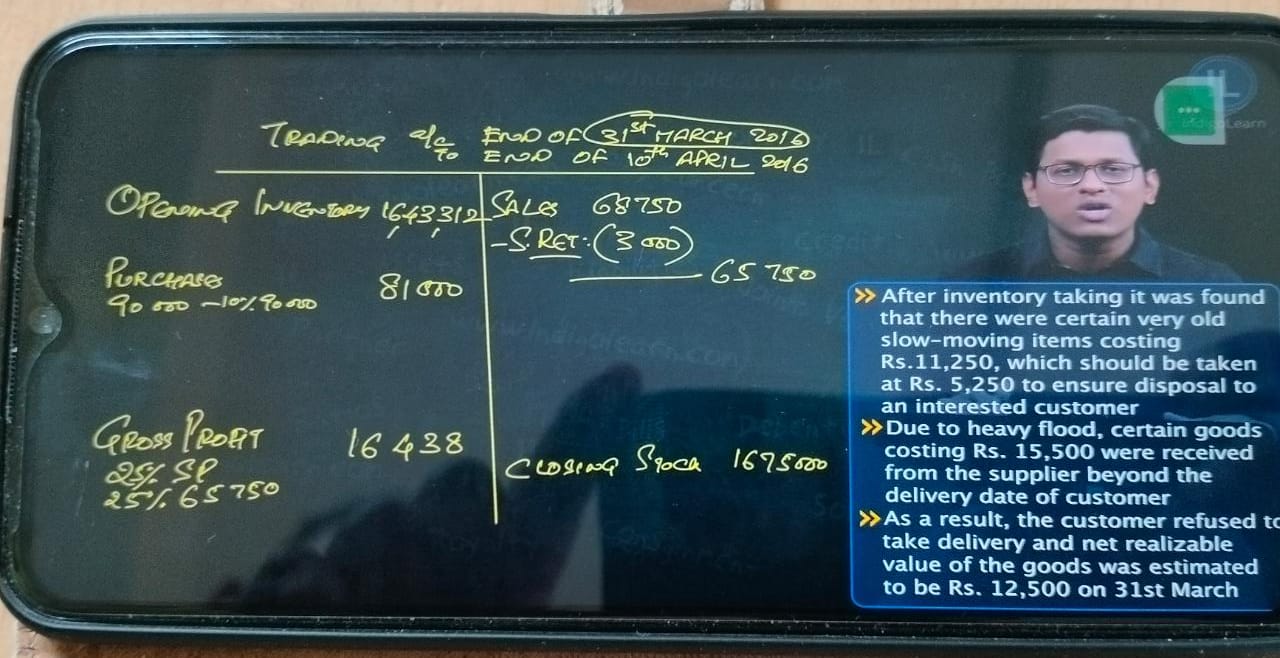 TRADING a/c END OF 31st MARCH 2016
TO END OF 10th APRIL 2016
OPENING INVENTORY 1643312
SALES 68750
-S.RET: (3000)
65750
PURCHASES 81000
90000 -10% 90000
GROSS PROFIT 16438
25% SP
25% 65750
CLOSING STOCK 1675000
IndigoLearn
>> After inventory taking it was found
that there were certain very old
slow-moving items costing
Rs.11,250, which should be taken
at Rs. 5,250 to ensure disposal to
an interested customer
>> Due to heavy flood, certain goods
costing Rs. 15,500 were received
from the supplier beyond the
delivery date of customer
>> As a result, the customer refused to
take delivery and net realizable
value of the goods was estimated
to be Rs. 12,500 on 31st March